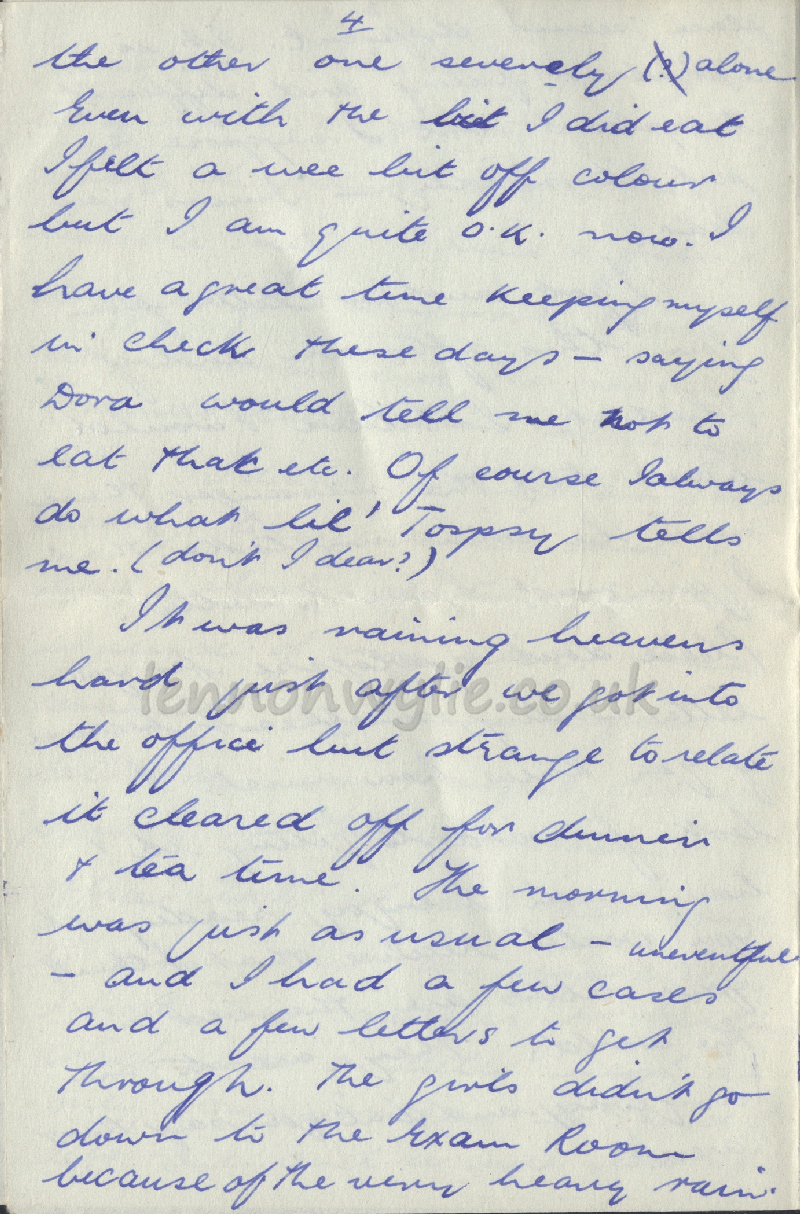 4
the other one severely (?) alone
Even with the bit I did eat
I felt a wee bit off colour
but I am quite O.K. now. I
have a great time keeping myself
in check these days – saying
Dora would tell me not to
eat that etc. Of course I always
do what lil' Topspy tells
me. (don't I dear?)
It was raining heavens
hard just after we got into
the office but strange to relate
it cleared off for dinner
& tea time. The morning
was just as usual – uneventful
– and I had a few cases
and a few letters to get
through. The girls didn't go
down to the Exam Room
because of the very heavy rain.
lennonwylie.co.uk